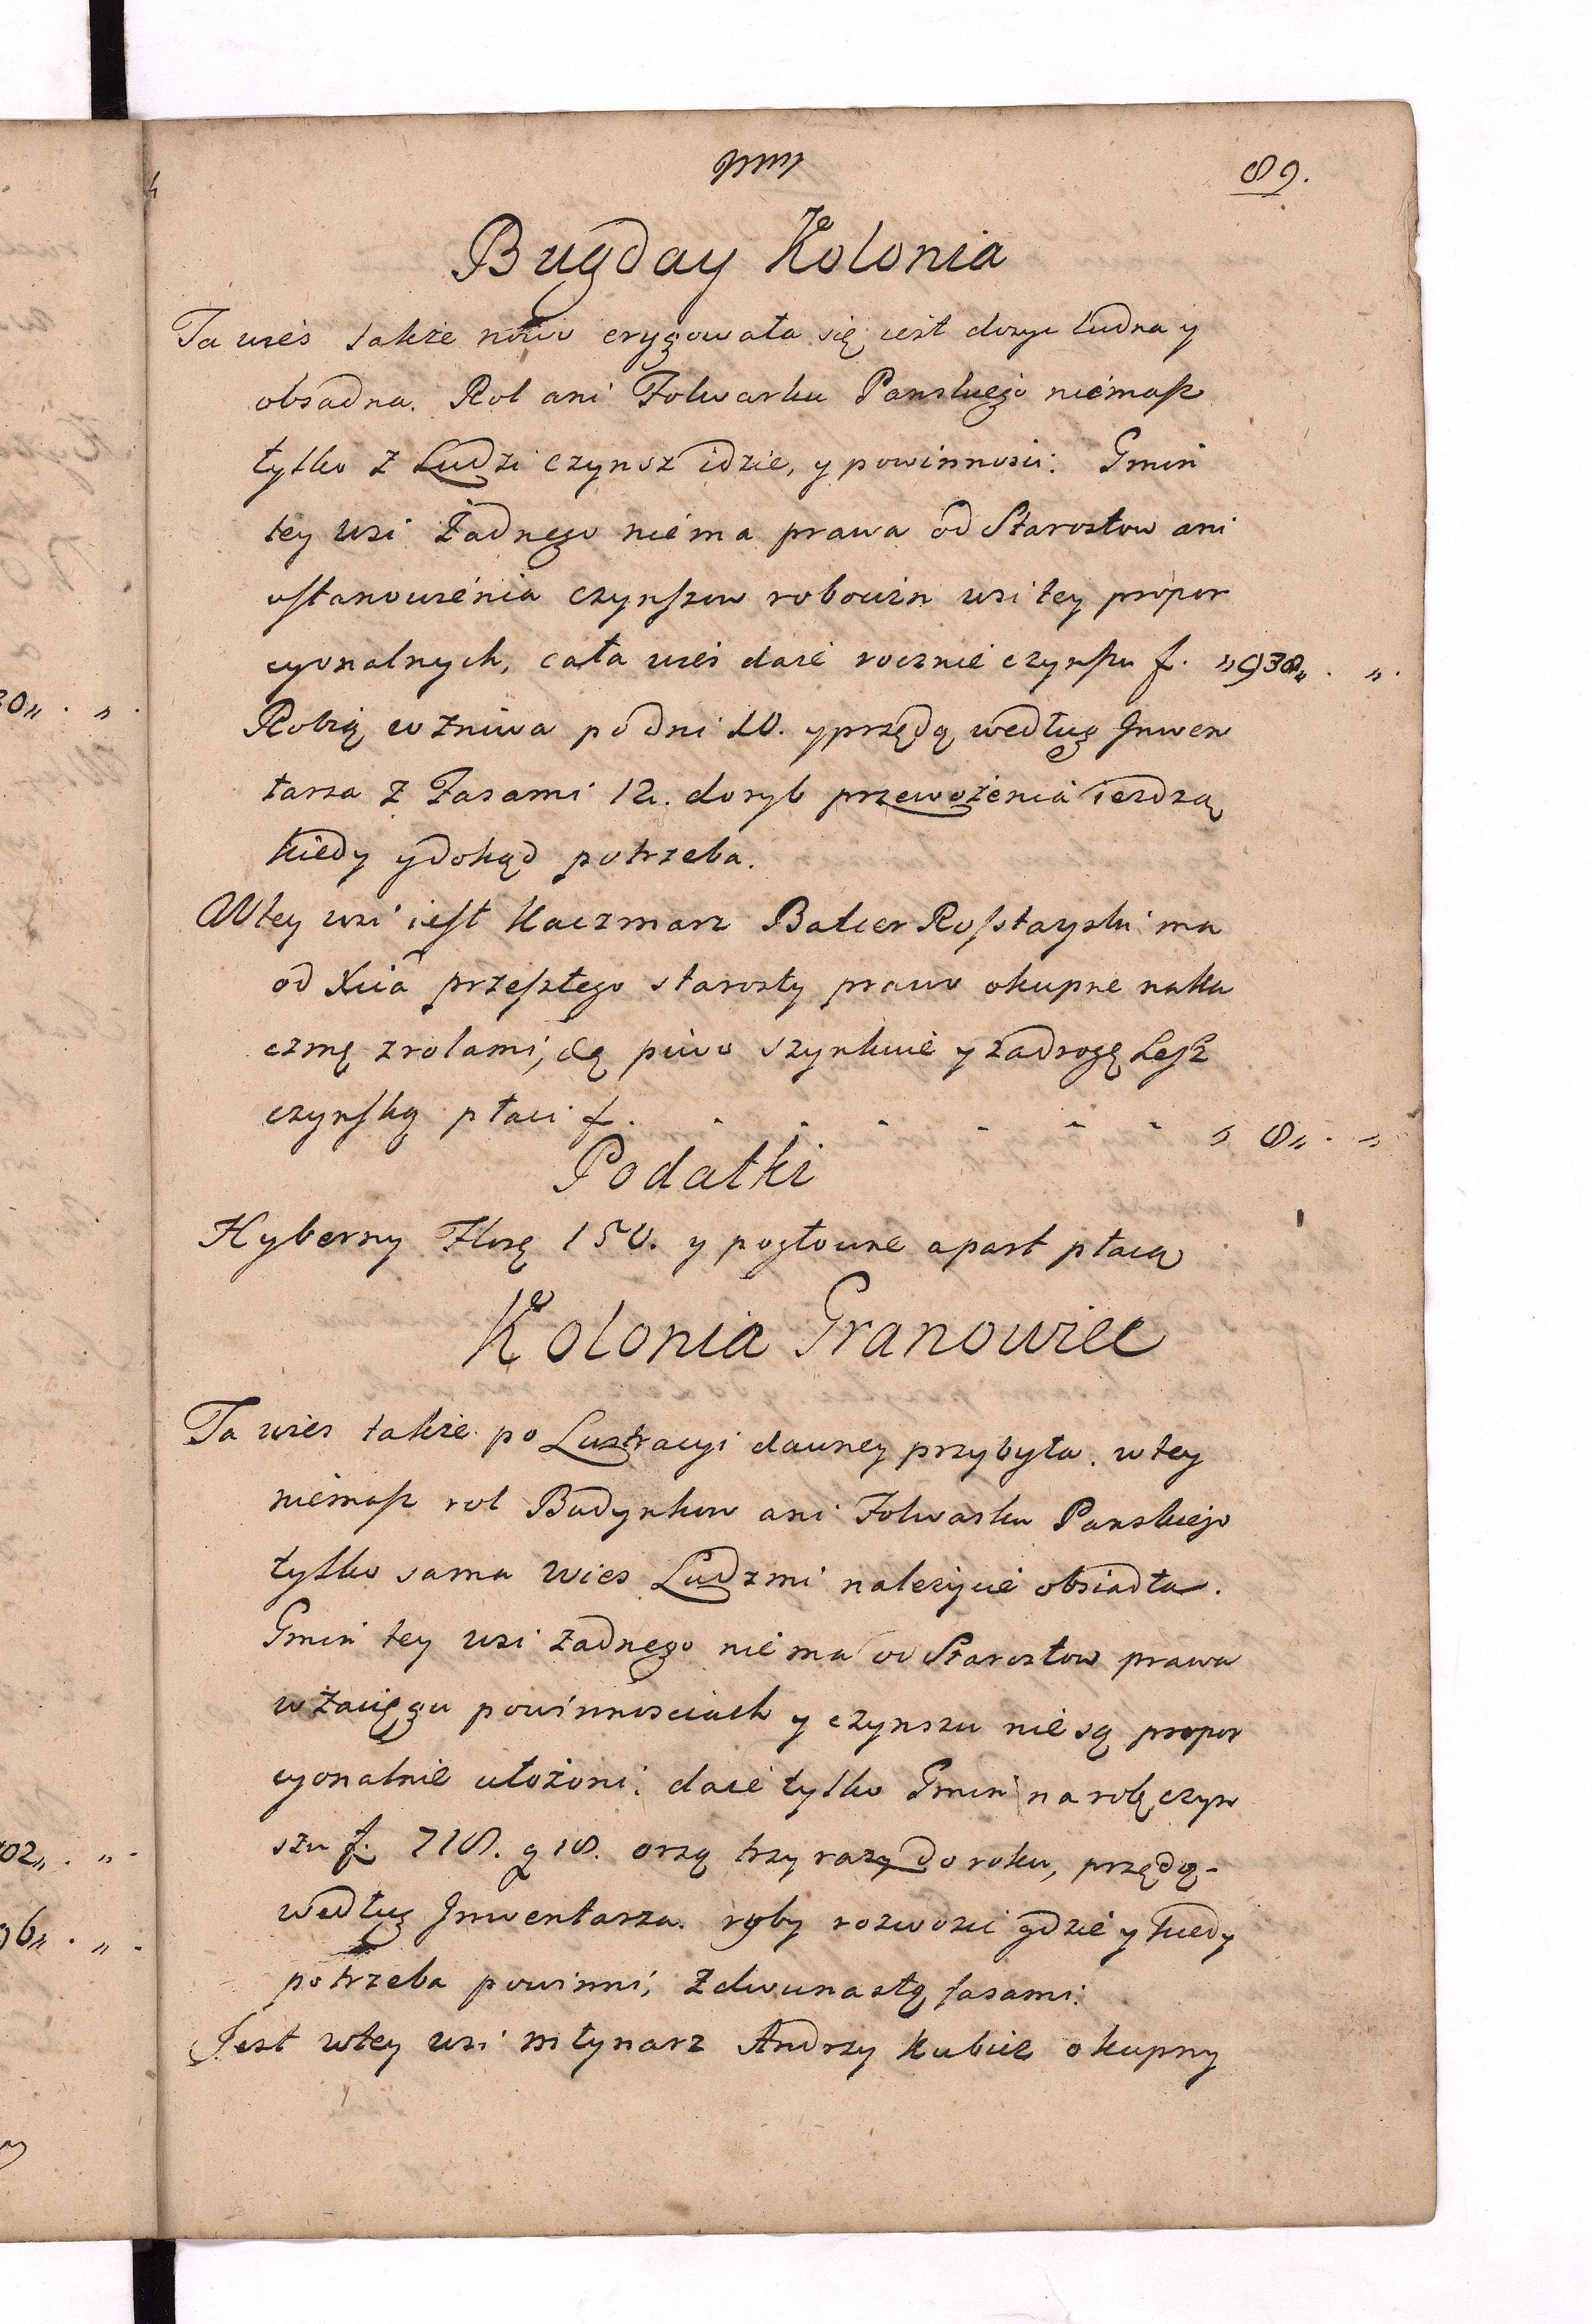 89.
Bugday Kolonia
Ta wieś także nowo erygowała się iest dosyc ludna y
obsadna. Rol ani Folwarku Panskiego niémasz
tylko z Ludzi czynsz idzie, y powinnosci. Gmin
tey wsi Żadnego niéma prawa od Starostow ani
ustanowiénia czynszow robocizn wsi tey propor
cyonalnych, cała wieś daié rocznié czynszu f. „ 938 „ . „ .
Robią w żniwa po dni 10. y przędą według Inwen
tarza z Łasami 12. do ryb przewożénia iezdzą
kiedy y dokąd potrzeba.
W tey wsi iest Kaczmarz Balcer Rosztayski ma
od Xcia przeszłego starosty prawo okupne na Ka
czmę z rolami, piwo szynkuié y za drogę Lesz
czynską płaci f. . - - - - - - „ 8 „ . „
Podatki
Hyberny Złorę 150. y pogłowne apart płacą
Kolonia Granowiec
Ta wies także po Lustracyi dawney przybyła. w tey
niémasz rol Budynkow ani Folwarku Panskiego
tylko sama wies Ludzmi należycié obsiadła.
Gmin tey wsi żadnego niéma od Starostow prawa
w Zaciągu powinnosciach y czynszu nié są propor
cyonalnié ułożoni: daié tylko Gmin na rolę czyn
szu f. 718. g 18. orzą trzy razy do roku, przędą -
według Inwentarza. ryby rozwozić gdzié y kiedy
potrzeba powinni, z dwunastą łasami.
Jest w tey wsi młynarz Andrzy Kubik okupny